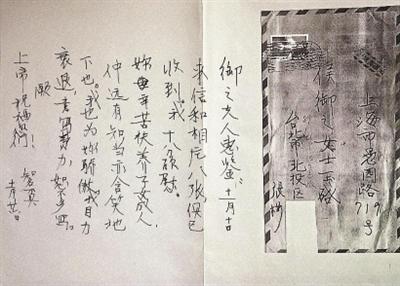 上海市愚园路
719号
侯御之女士玉啟
台北市 北投区
御之夫人惠鉴 十一月十日
来信和相片八张俱已
收到,我十分欣慰。
妳辛苦扶养子女成人,
仲远有知当亦含笑地
下也。我也为妳骄傲。我目力
衰退,书写费力,恕不多写。
愿
上帝祝福妳们!